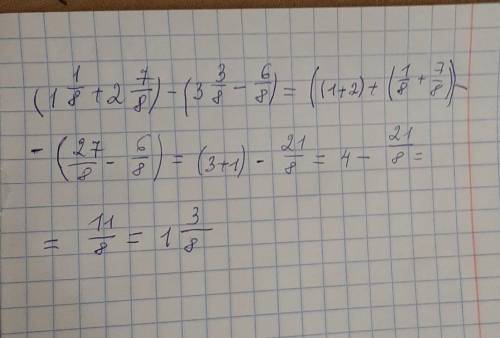 (1 1/8 + 2 7/8) - (3 3/8 - 6/8) = ((1+2) + (1/8 + 7/8)) -
- (27/8 - 6/8) = (3+1) - 21/8 = 4 - 21/8 =
= 11/8 = 1 3/8